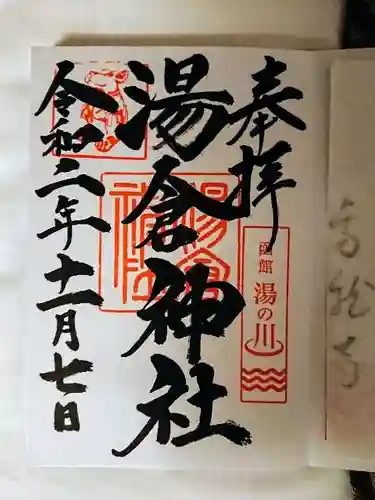 奉拝
函館
湯の川
湯倉神社
令和二年十一月七日